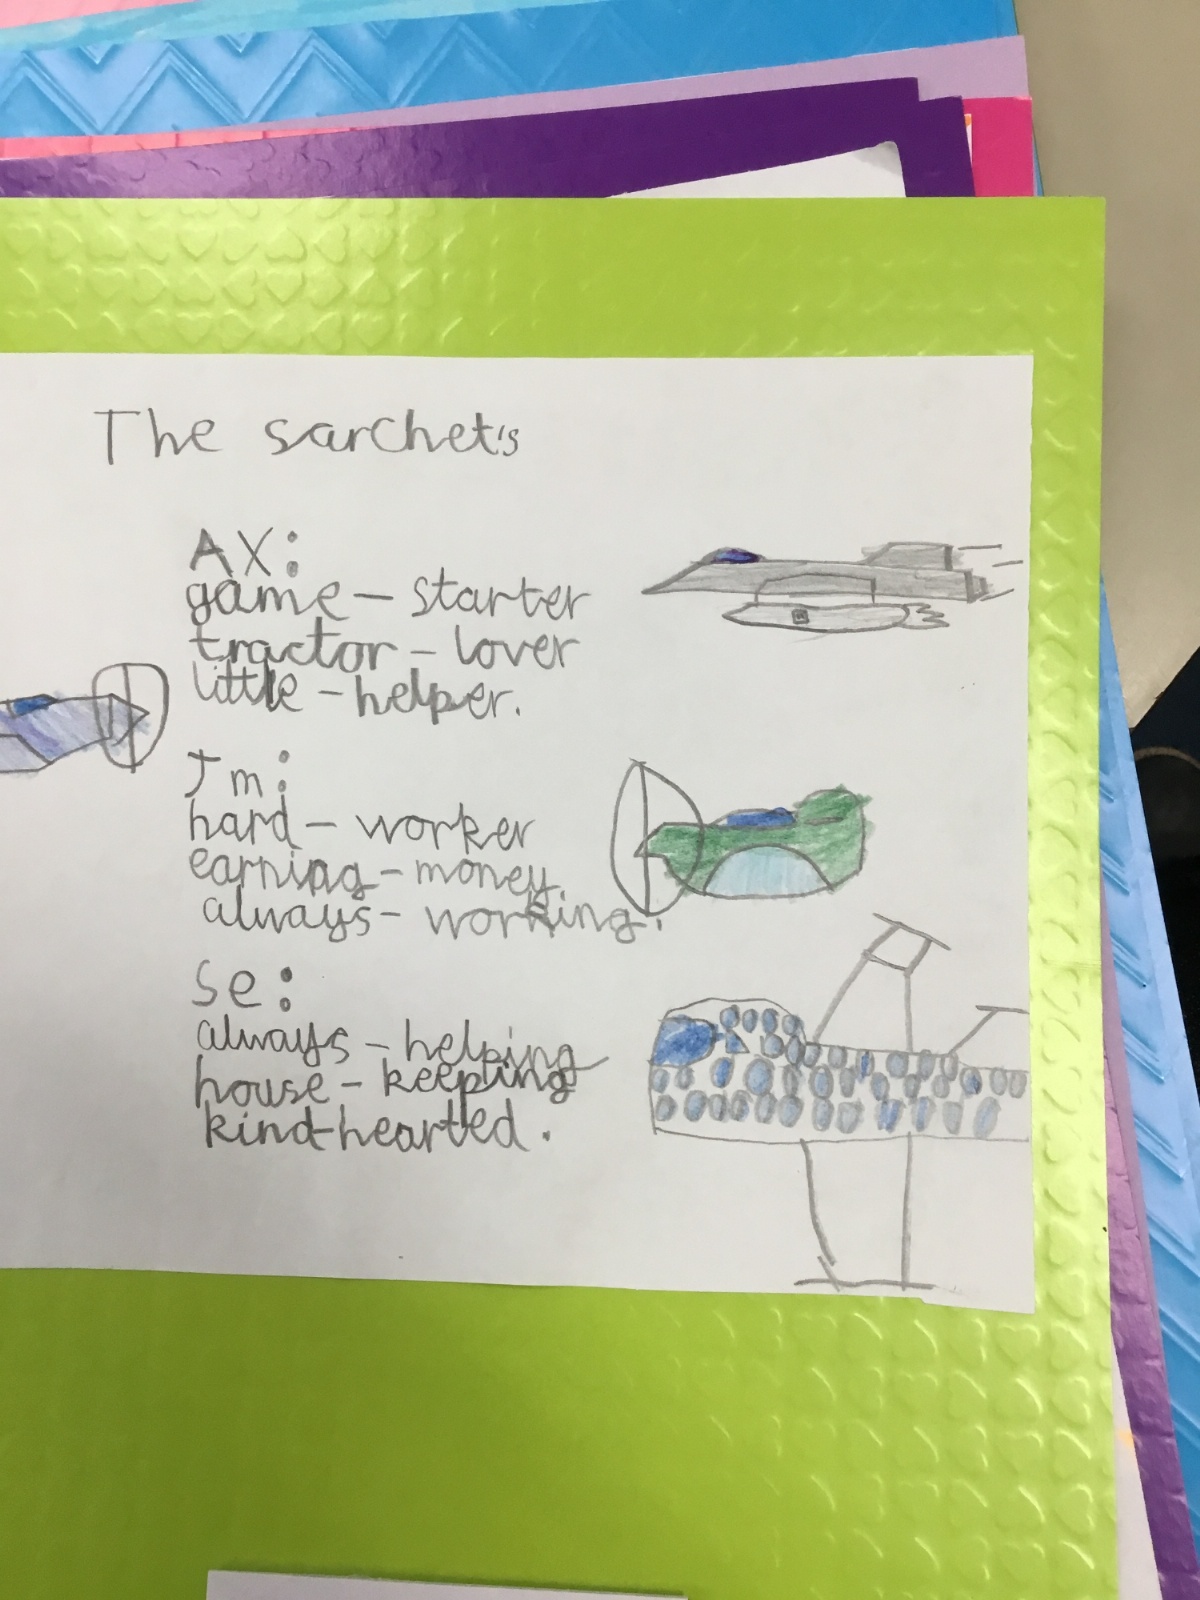 The sarchet's
AX:
game - starter
tractor - lover
little - helper.
Jm:
hard - worker
earning - money.
always - working.
se:
always - helping
house - keeping
kind-hearted.